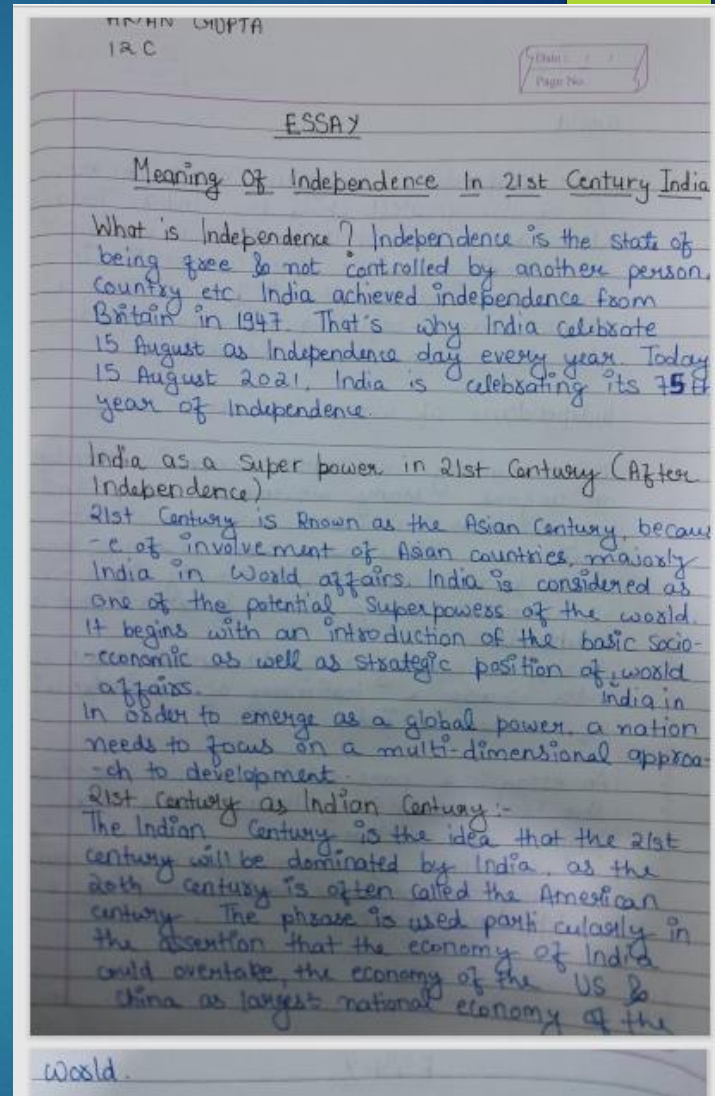 GUPTA
12 C
Date : / /
Page No.
ESSAY
Meaning Of Independence In 21st Century India
What is Independence ? Independence is the state of
being free & not controlled by another person,
country etc. India achieved independence from
Britain in 1947. That's why India celebrate
15 August as Independence day every year. Today
15 August 2021, India is celebrating its 75th
year of Independence.
India as a Super power in 21st Century (After
Independence)
21st Century is known as the Asian Century, becaus
-e of involvement of Asian countries, majorly
India in World affairs. India is considered as
one of the potential Superpowers of the world.
It begins with an introduction of the basic socio-
-economic as well as strategic position of world
affairs. India in
In order to emerge as a global power, a nation
needs to focus on a multi-dimensional approa-
-ch to development.
21st Century as Indian Century :-
The Indian Century is the idea that the 21st
century will be dominated by India, as the
20th century is often called the American
century. The phrase is used parti cularly in
the assertion that the economy of India
could overtake, the economy of the US &
China as largest national economy of the
world.